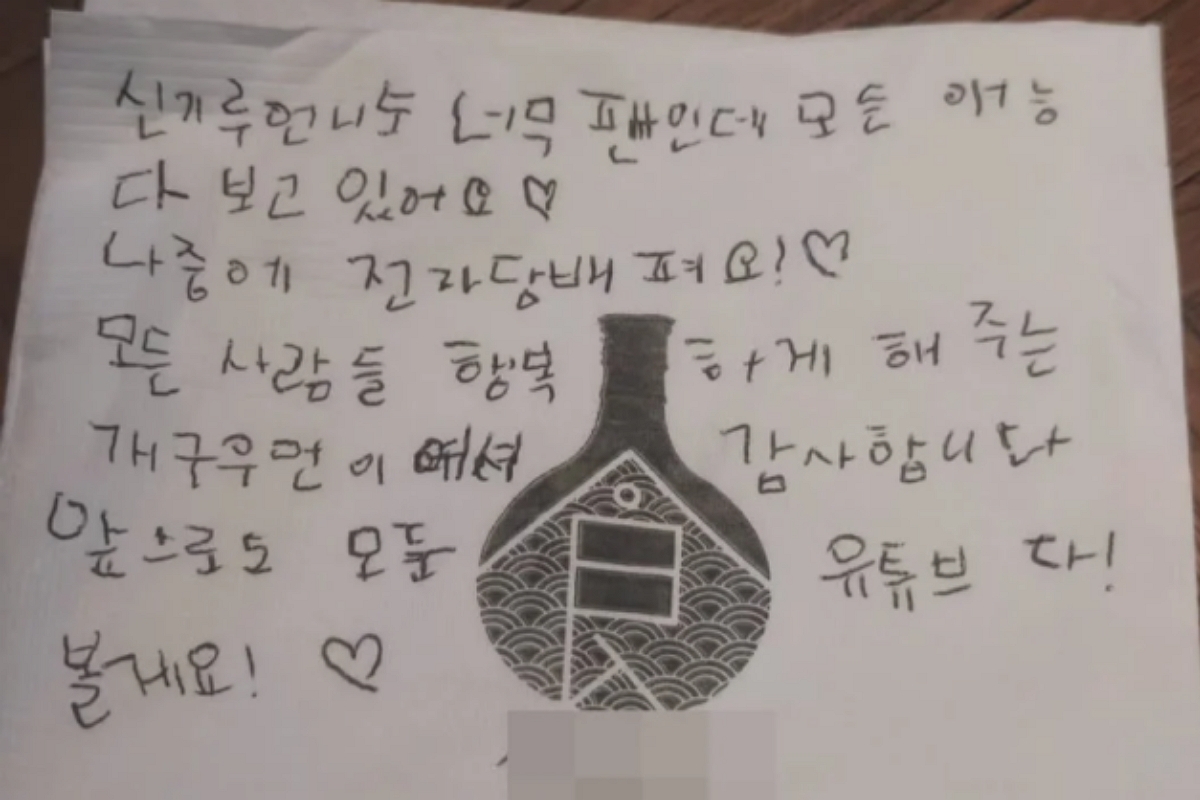 신기루언니도 너무 팬인데 모든 예능
다 보고 있어요♡
나중에 전자담배 펴요!♡
모든 사람들 행복하게 해 주는
개구우먼이여셔 감사합니다
앞으로도 모든 유튜브 다!
볼게요! ♡